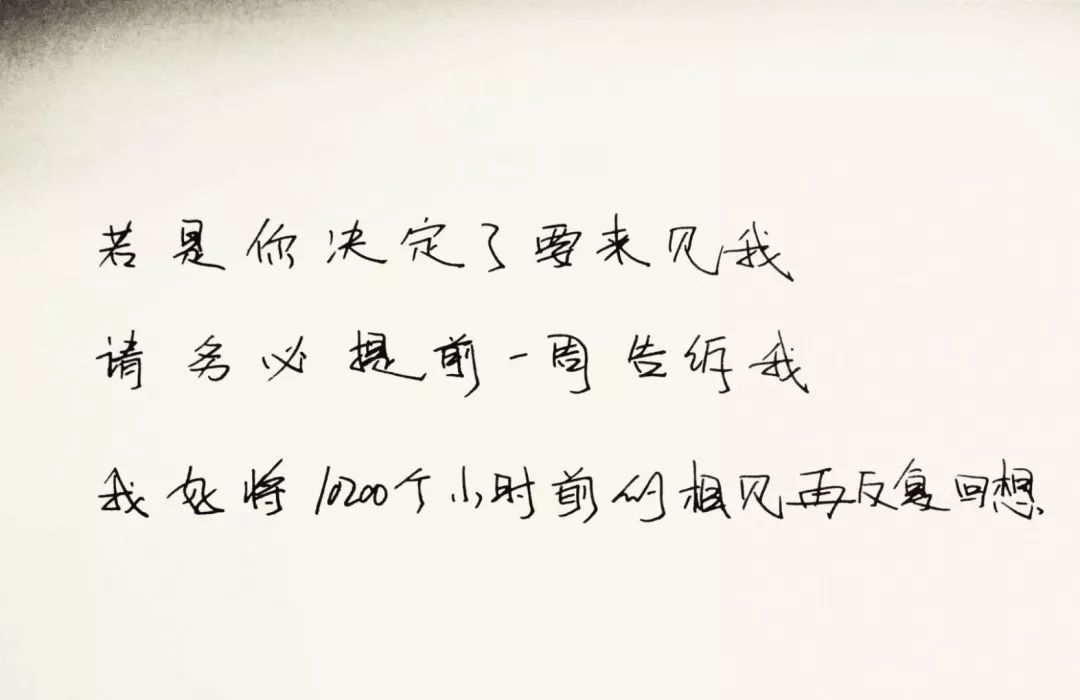 若是你决定了要来见我
请务必提前一周告诉我
我好将10200个小时前的相见再反复回想